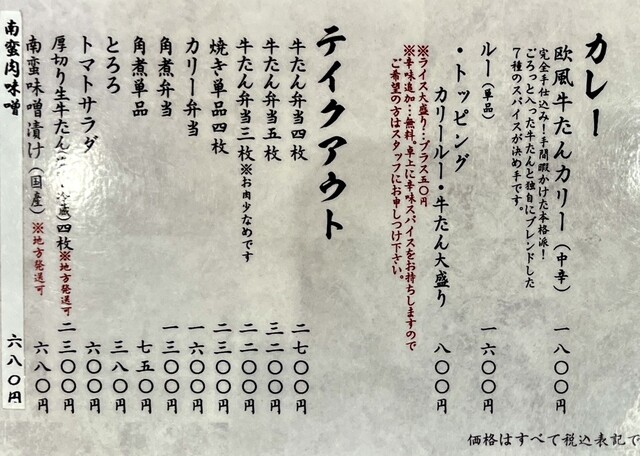 カレー
欧風牛たんカリー（中辛） 一八〇〇円
完全手仕込み！手間暇かけた本格派！
ごろっと入った牛たんと独自にブレンドした
7種のスパイスが決め手です。
ルー（単品） 一六〇〇円
・トッピング
カリールー・牛たん大盛り 八〇〇円
※ライス大盛り…プラス五〇円
※辛味追加…無料。卓上に辛味スパイスをお持ちしますので
ご希望の方はスタッフにお申しつけ下さい。
テイクアウト
牛たん弁当四枚 二七〇〇円
牛たん弁当五枚 三二〇〇円
牛たん弁当三枚※お肉少なめです 二二〇〇円
焼き単品四枚 二三〇〇円
カリー弁当 一六〇〇円
角煮弁当 一三〇〇円
角煮単品 七五〇円
とろろ 三八〇円
トマトサラダ 六〇〇円
厚切り生牛たん 冷蔵）四枚※地方発送可 二三〇〇円
南蛮味噌漬け（国産）※地方発送可 六八〇円
南蛮肉味噌 六八〇円
価格はすべて税込表記で